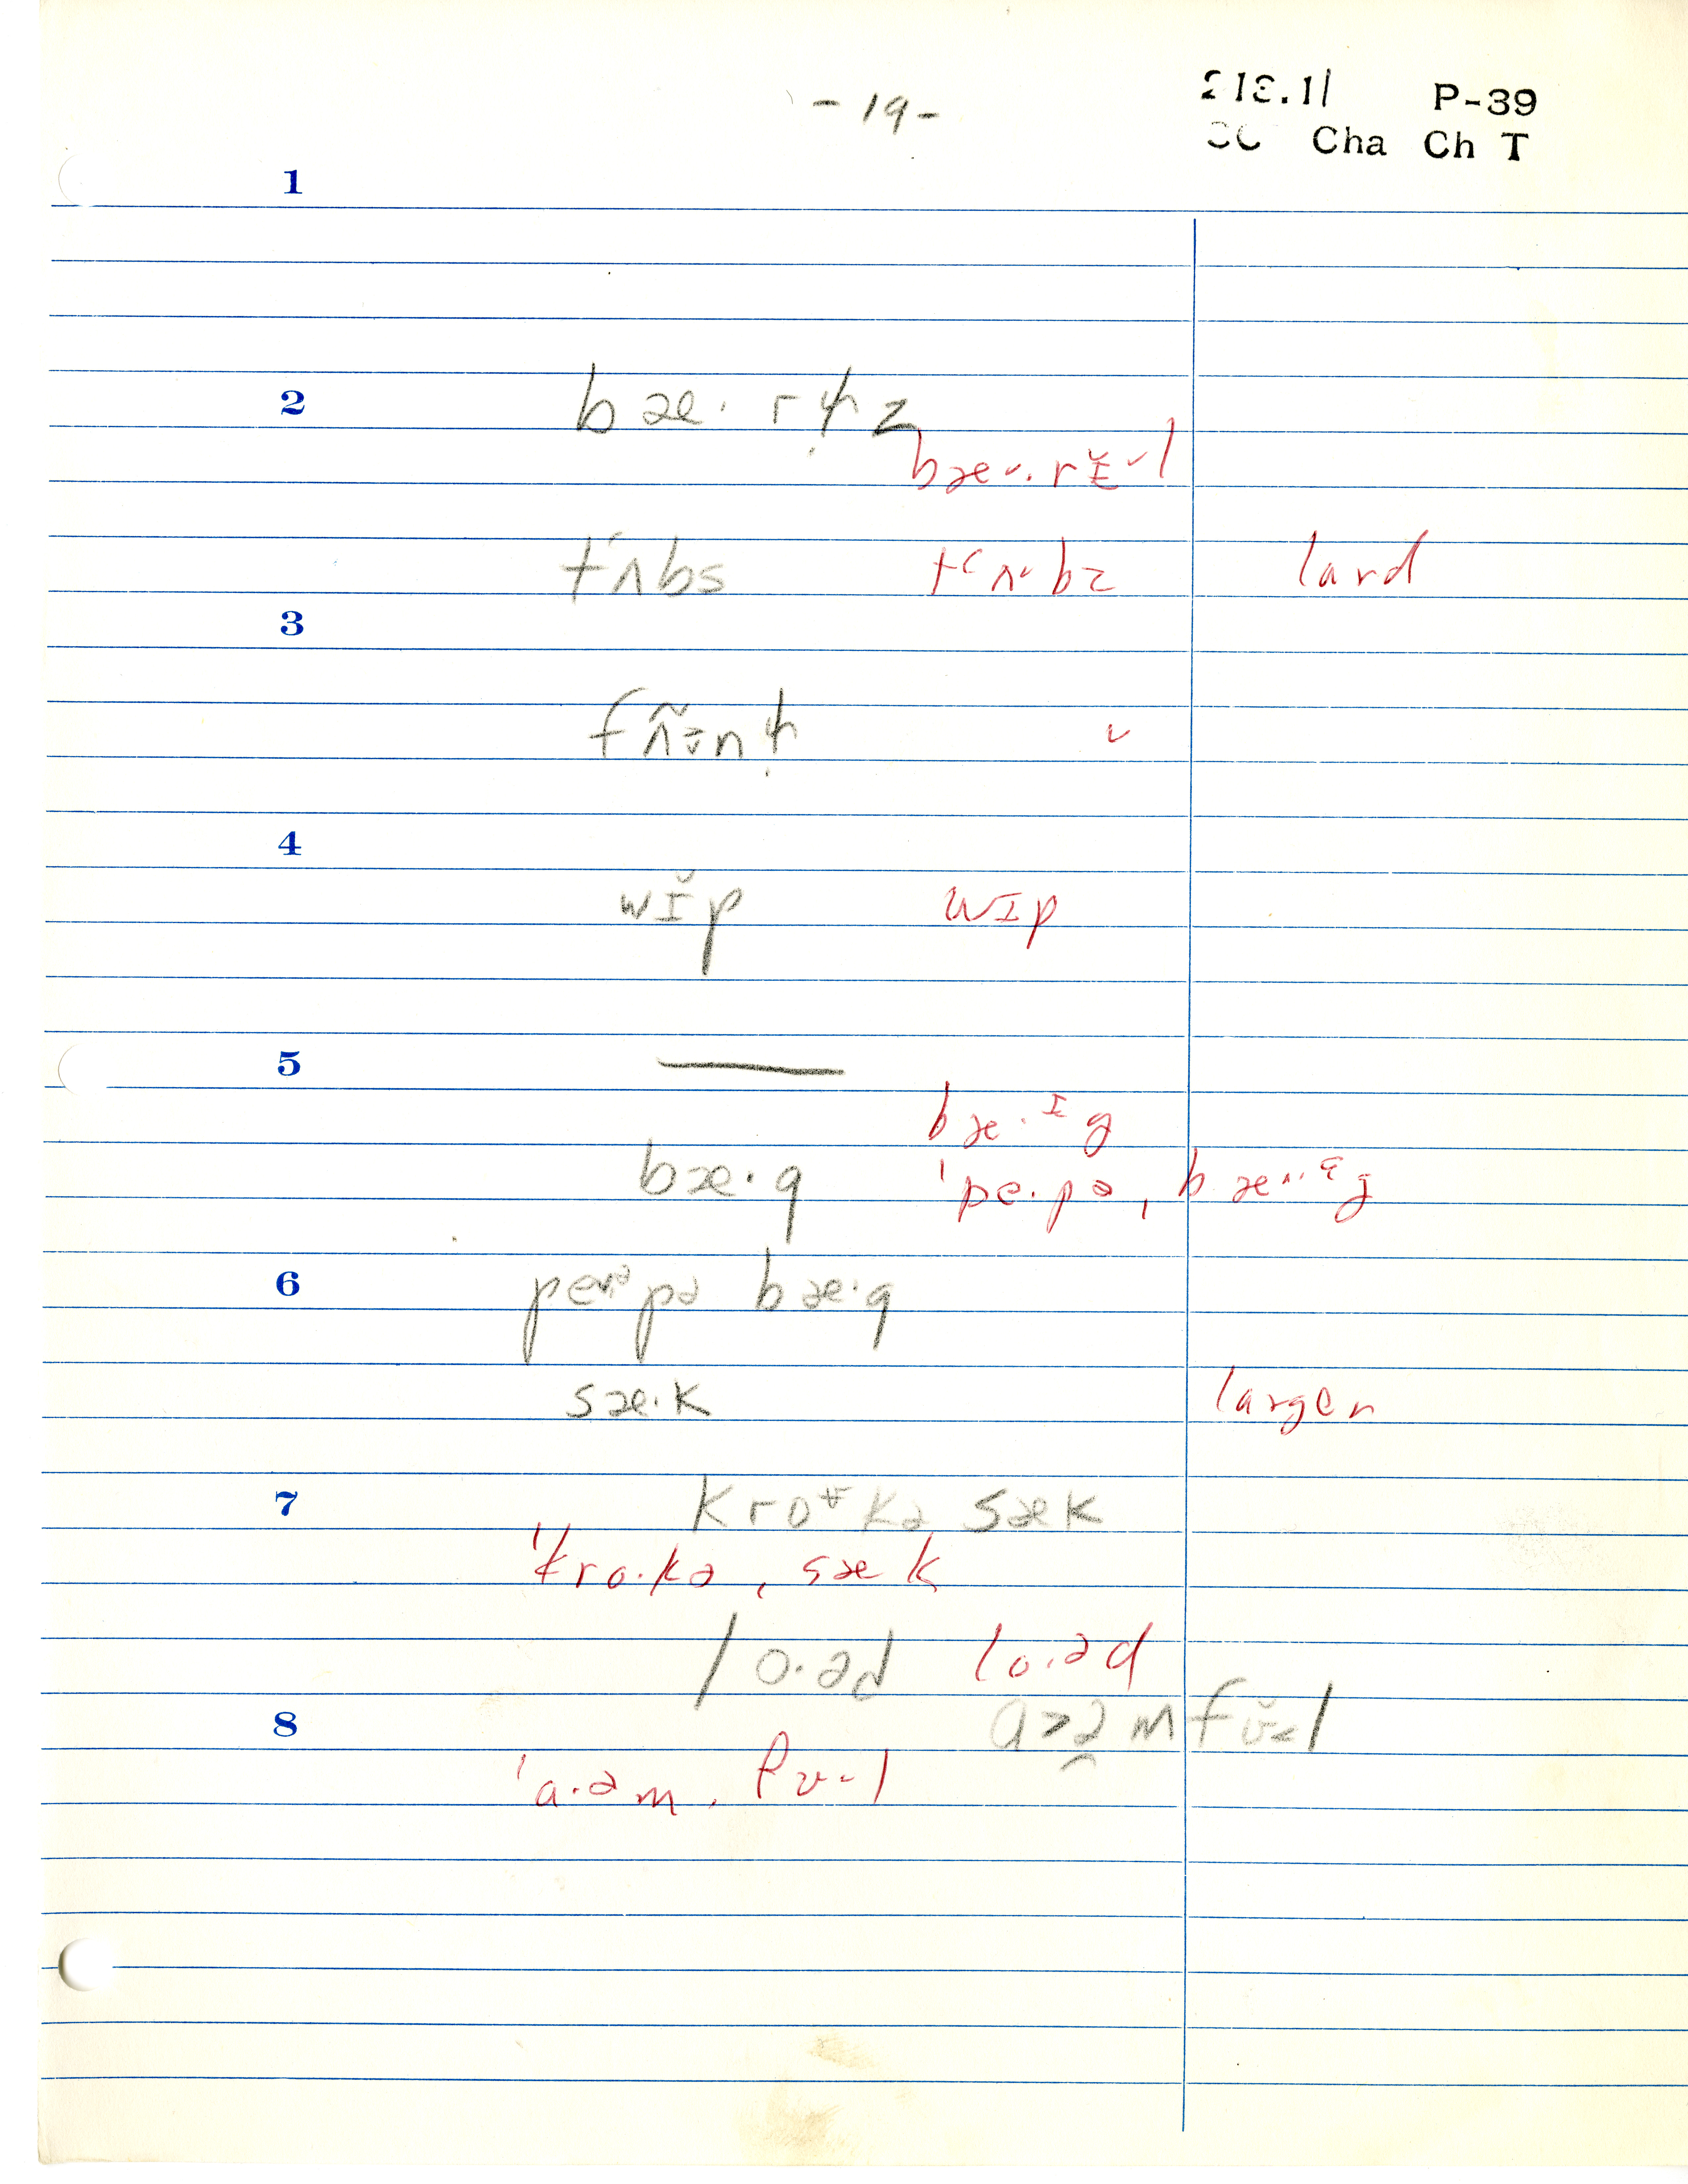 - 19 -
213.11 P-39
Cha Ch T
1
2
bæ· r z
bæ˅·rɪ̵̆˅l
tʻʌbs tʻʌ˅bz lard
3
˅
4
wɪ̆p wɪp
5
—
bæ·ᴵg
bæ·g ˈpe·pə ˌbæ^·ᵋg
6
pə bæ·g
sæ·k larger
7
sæk
ˈkro·kə ˌsæk
lo·əd lo·əd
8
ˈa·əm ˌfʊ˅l